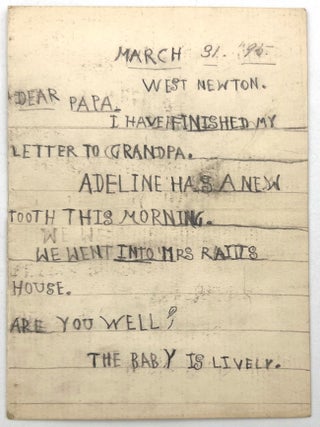 MARCH 31. '95.
WEST NEWTON.
DEAR PAPA.
I HAVE FINISHED MY
LETTER TO GRANDPA.
ADELINE HAS A NEW
TOOTH THIS MORNING.
WE WENT INTO MRS
HOUSE.
ARE YOU WELL?
THE BABY IS LIVELY.